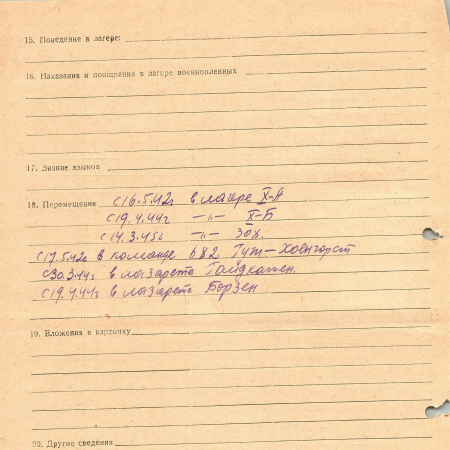 15. Поведение в лагере:
16. Наказания и поощрения в лагере военнопленных
17. Знание языков
18. Перемещения с 16.5.42г в лагере X-А
с 19.4.44г —"— X-Б
с 14.3.45г —"—
с 17.5.42г в команде 682
с 30.3.44г в лазарете Гайдкатен
с 19.4.44г в лазарете Борзен
19. Вложения в карточку
20. Другие сведения